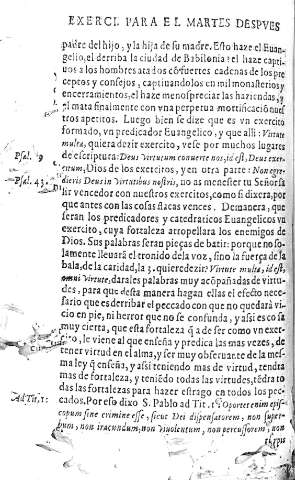 EXERCI. PARA EL MARTES DESPVES
padre del hijo, y la hija de su madre. Esto haze el Euan-
gelio, el derriba la ciudad de Babilonia: el haze capti-
uos a los hombres atados cō fuertes cadenas de los pre
ceptos y consejos, captiuandolos en mil monasterios y
encerramientos, el haze menospreciar las haziendas, y
el mata finalmente con vna perpetua mortificaciō nues
tros apetitos. Luego bien se dize que es vn exercito
formado, vn predicador Euangelico, y que alli: Virtute
multa, quiera dezir exercito, vese por muchos lugares
Psal. 79 de escriptura: Deus virtutum conuerte nos, id est, Deus exer-
cituum, Dios de los exercitos, y en otra parte: Non egre-
Psal. 43. dieris Deus in virtutibus nostris, no as menester tu Señor sa
lir vencedor con nuestros exercitos, como si dixera, por
que antes con las cosas flacas vences. Demanera, que
seran los predicadores y catedraticos Euangelicos vn
exercito, cuya fortaleza atropellara los enemigos de
Dios. Sus palabras seran pieças de batir: porque no so-
lamente lleuarā el tronido de la voz, sino la fuerça de la
bala, de la caridad, la 3. quiere dezir: Virtute multa, id est,
omni virtute, darales palabras muy acōpañadas de virtu-
des, para que desta manera hagan ellas el efecto nece-
sario que es derribar el peccado con que no quedará vi-
cio en pie, ni herror que no se confunda, y assi es cosa
muy cierta, que esta fortaleza q̄ a de ser como vn exer-
cito, le viene al que enseña y predica las mas vezes, de
tener virtud en el alma, y ser muy obseruāte de la mes-
ma ley q̄ enseña, y assi teniendo mas de virtud, tendra
mas de fortaleza, y teniēdo todas las virtudes, tēdra to
das las fortalezas para hazer estrago en todos los pec-
Ad Tit. 1: cados. Por esso dixo S. Pablo ad Tit. 1. Oportet enim epis-
copum sine crimine esse, sicut Dei dispensatorem, non super-
bum, non iracundum, non violentum, non percussorem, non